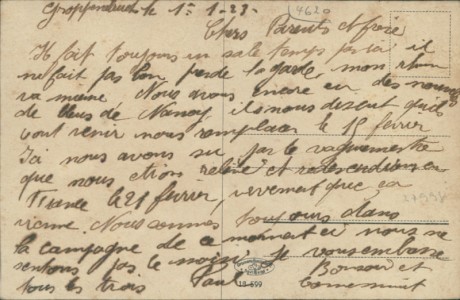 le 1. 1-23. 4620
Chers Parents et frère
Il fait toujours un sale temps par ici il
ne fait pas bon prendre la garde, mon rhum
va mieux Nous avons encore eu des nouvelles
de ceux de Nancy ils nous disent qu'ils
vont venir nous remplacer le 15 février
Ici nous avons su par le vaguemestre
que nous étions relevé et redescendions en
France le 21 février, vivement que ça
vienne Nous sommes toujours dans
la campagne de ce moment ci nous ne
sentons pas le moisi. Je vous embrasse
tous les trois Paul Bonsoir et
18-699